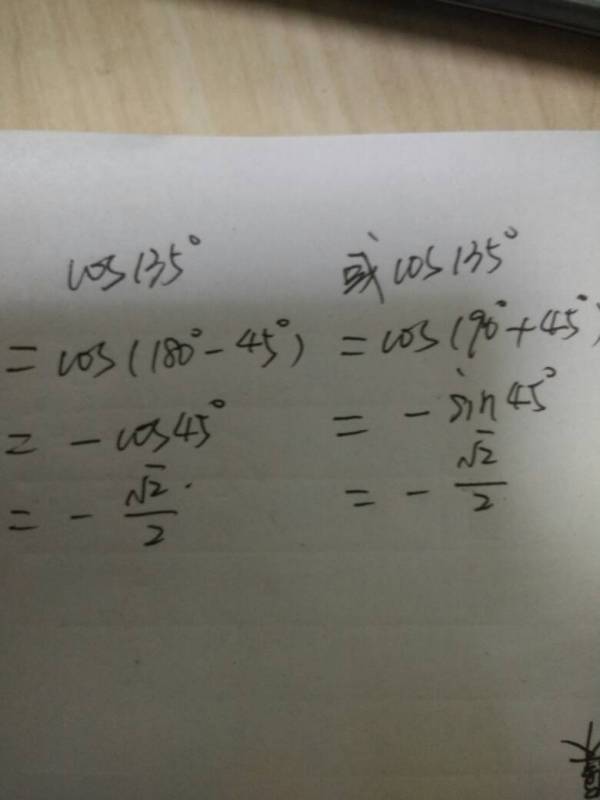 cos135°
= cos(180° - 45°)
= - cos45°
= - √2/2.
或 cos135°
= cos(90° + 45°)
= - sin45°
= - √2/2